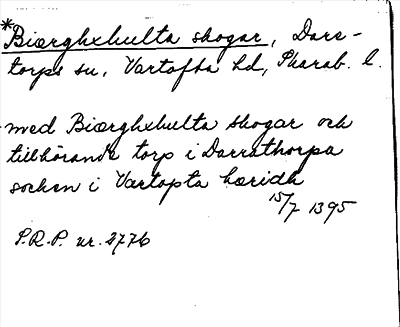 *Biærghxhulta skogar, Dars-
torps sn, Vartofta hd, Skarab. l.
med Biærghxhulta skogar och
tillhörande torp i Darrathorpa
socken i Vartopta hæridh
15/7 1395
P.R.P. nr. 2776